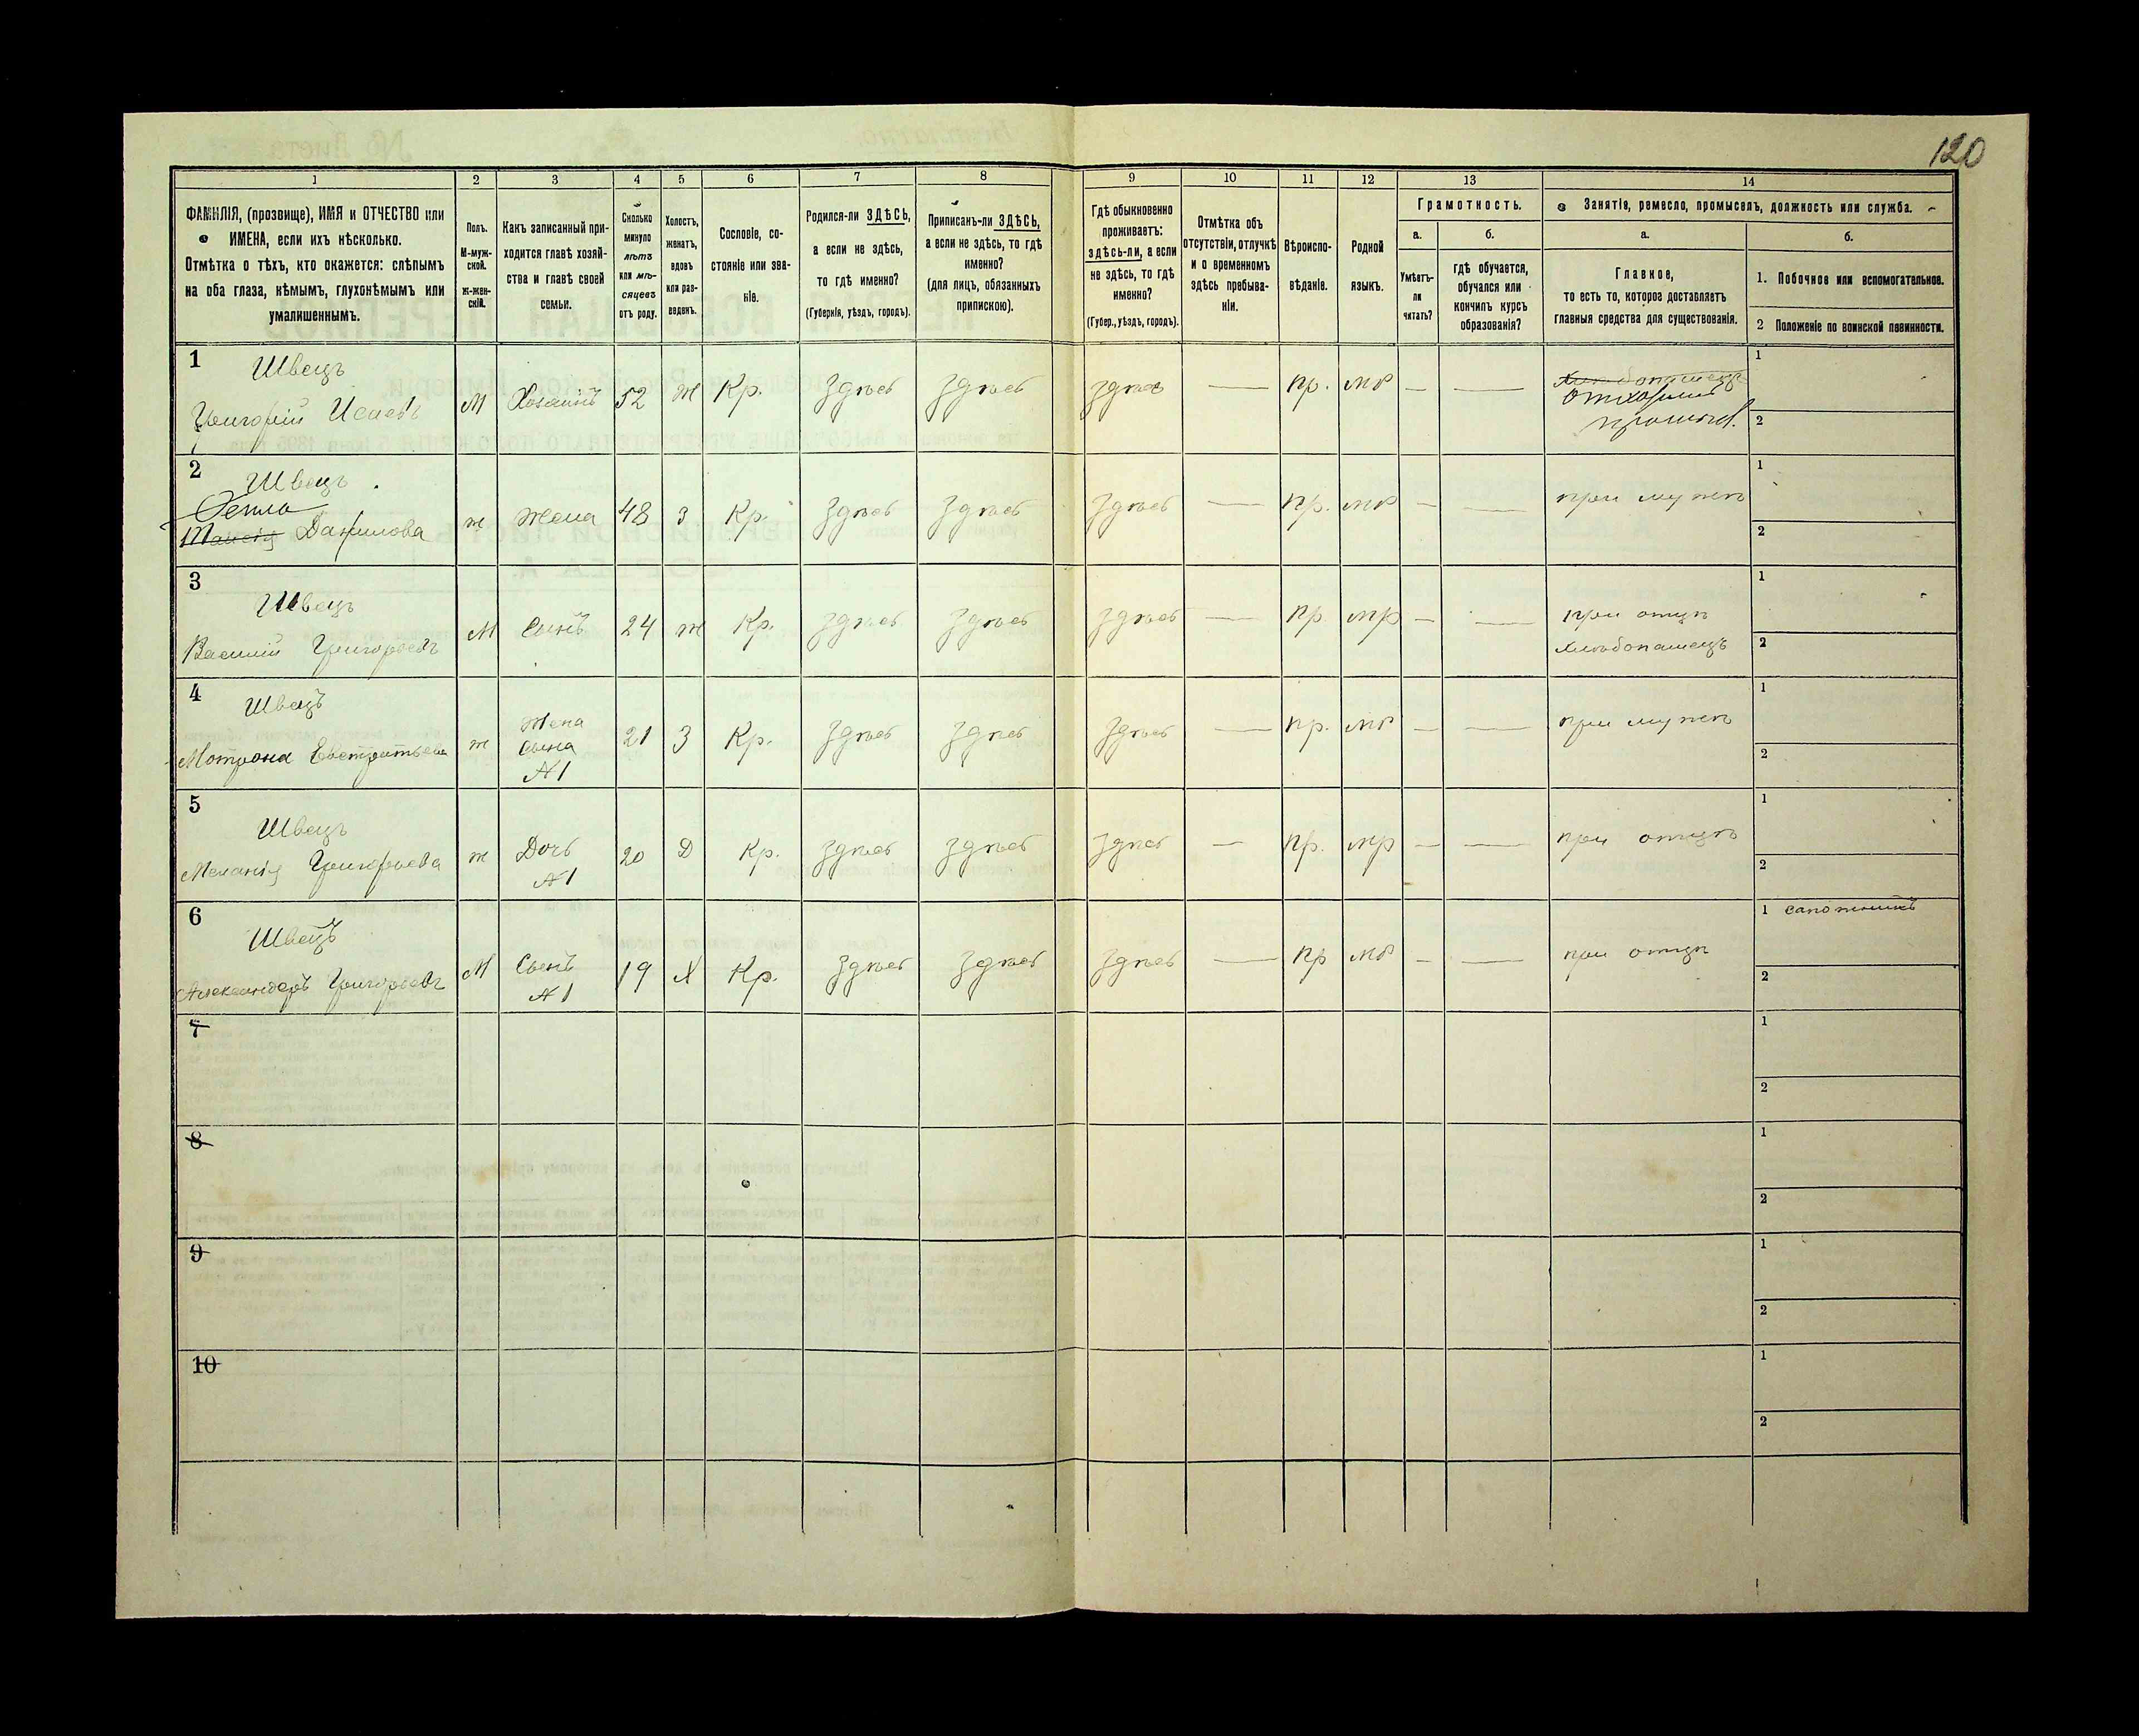 120
1 2 3 4 5 6 7 8 9 10 11 12 13 14
ФАМИЛІЯ, (прозвище), ИМЯ и ОТЧЕСТВО или
ИМЕНА, если ихъ нѣсколько.
Отмѣтка о тѣхъ, кто окажется: слѣпымъ
на оба глаза, нѣмымъ, глухонѣмымъ или
умалишеннымъ.
Полъ.
М-муж-
ской.
ж-жен-
скій.
Какъ записанный при-
ходится главѣ хозяй-
ства и главѣ своей
семьи.
Сколько
минуло
лѣтъ
или мѣ-
сяцевъ
отъ роду.
Холостъ,
женатъ,
вдовъ
или раз-
веденъ.
Сословіе, со-
стояніе или зва-
ніе.
Родился-ли ЗДѢСЬ,
а если не здѣсь,
то гдѣ именно?
(Губернія, уѣздъ, городъ).
Приписанъ-ли ЗДѢСЬ,
а если не здѣсь, то гдѣ
именно?
(для лицъ, обязанныхъ
припискою).
Гдѣ обыкновенно
проживаетъ:
здѣсь-ли, а если
не здѣсь, то гдѣ
именно?
(Губер., уѣздъ, городъ).
Отмѣтка объ
отсутствіи, отлучкѣ
и о временномъ
здѣсь пребыва-
ніи.
Вѣроиспо-
вѣданіе.
Родной
языкъ.
Грамотность.
а.
Умѣетъ-
ли
читать?
б.
гдѣ обучается,
обучался или
кончилъ курсъ
образованія?
Занятіе, ремесло, промыселъ, должность или служба.
а.
Главное,
то есть то, которое доставляетъ
главныя средства для существованія.
б.
1. Побочное или вспомогательное.
2 Положеніе по воинской повинности.
1
Швецъ
Григорій Исаевъ
М
Хозяинъ
52
Ж
Кр.
Здѣсь
Здѣсь
Здѣсь
—
пр.
мр
—
—
Хлѣбопашецъ
Отхожий
промысл.
1
2
2
Швецъ
Фекла
Таисія Данилова
ж
Жена
48
З
Кр.
Здѣсь
Здѣсь
Здѣсь
—
пр.
мр
—
—
при мужѣ
1
2
3
Швецъ
Василій Григорьевъ
М
Сынъ
24
ж
Кр.
Здѣсь
Здѣсь
Здѣсь
—
пр
мр
—
—
при отцѣ
Хлѣбопашецъ
1
2
4
Швецъ
Мотрона Евстратьева
ж
Жена
сына
№1
21
З
Кр.
Здѣсь
Здѣсь
Здѣсь
—
пр.
мр
—
—
при мужѣ
1
2
5
Швецъ
Меланія Григорьева
ж
Дочь
№1
20
Д
Кр.
Здѣсь
Здѣсь
Здѣсь
—
пр.
мр
—
—
при отцѣ
1
2
6
Швецъ
Александеръ Григорьевъ
М
Сынъ
№1
19
Х
Кр.
Здѣсь
Здѣсь
Здѣсь
—
пр
мр
—
—
при отцѣ
1 сапожникъ
2
7
1
2
8
1
2
9
1
2
10
1
2